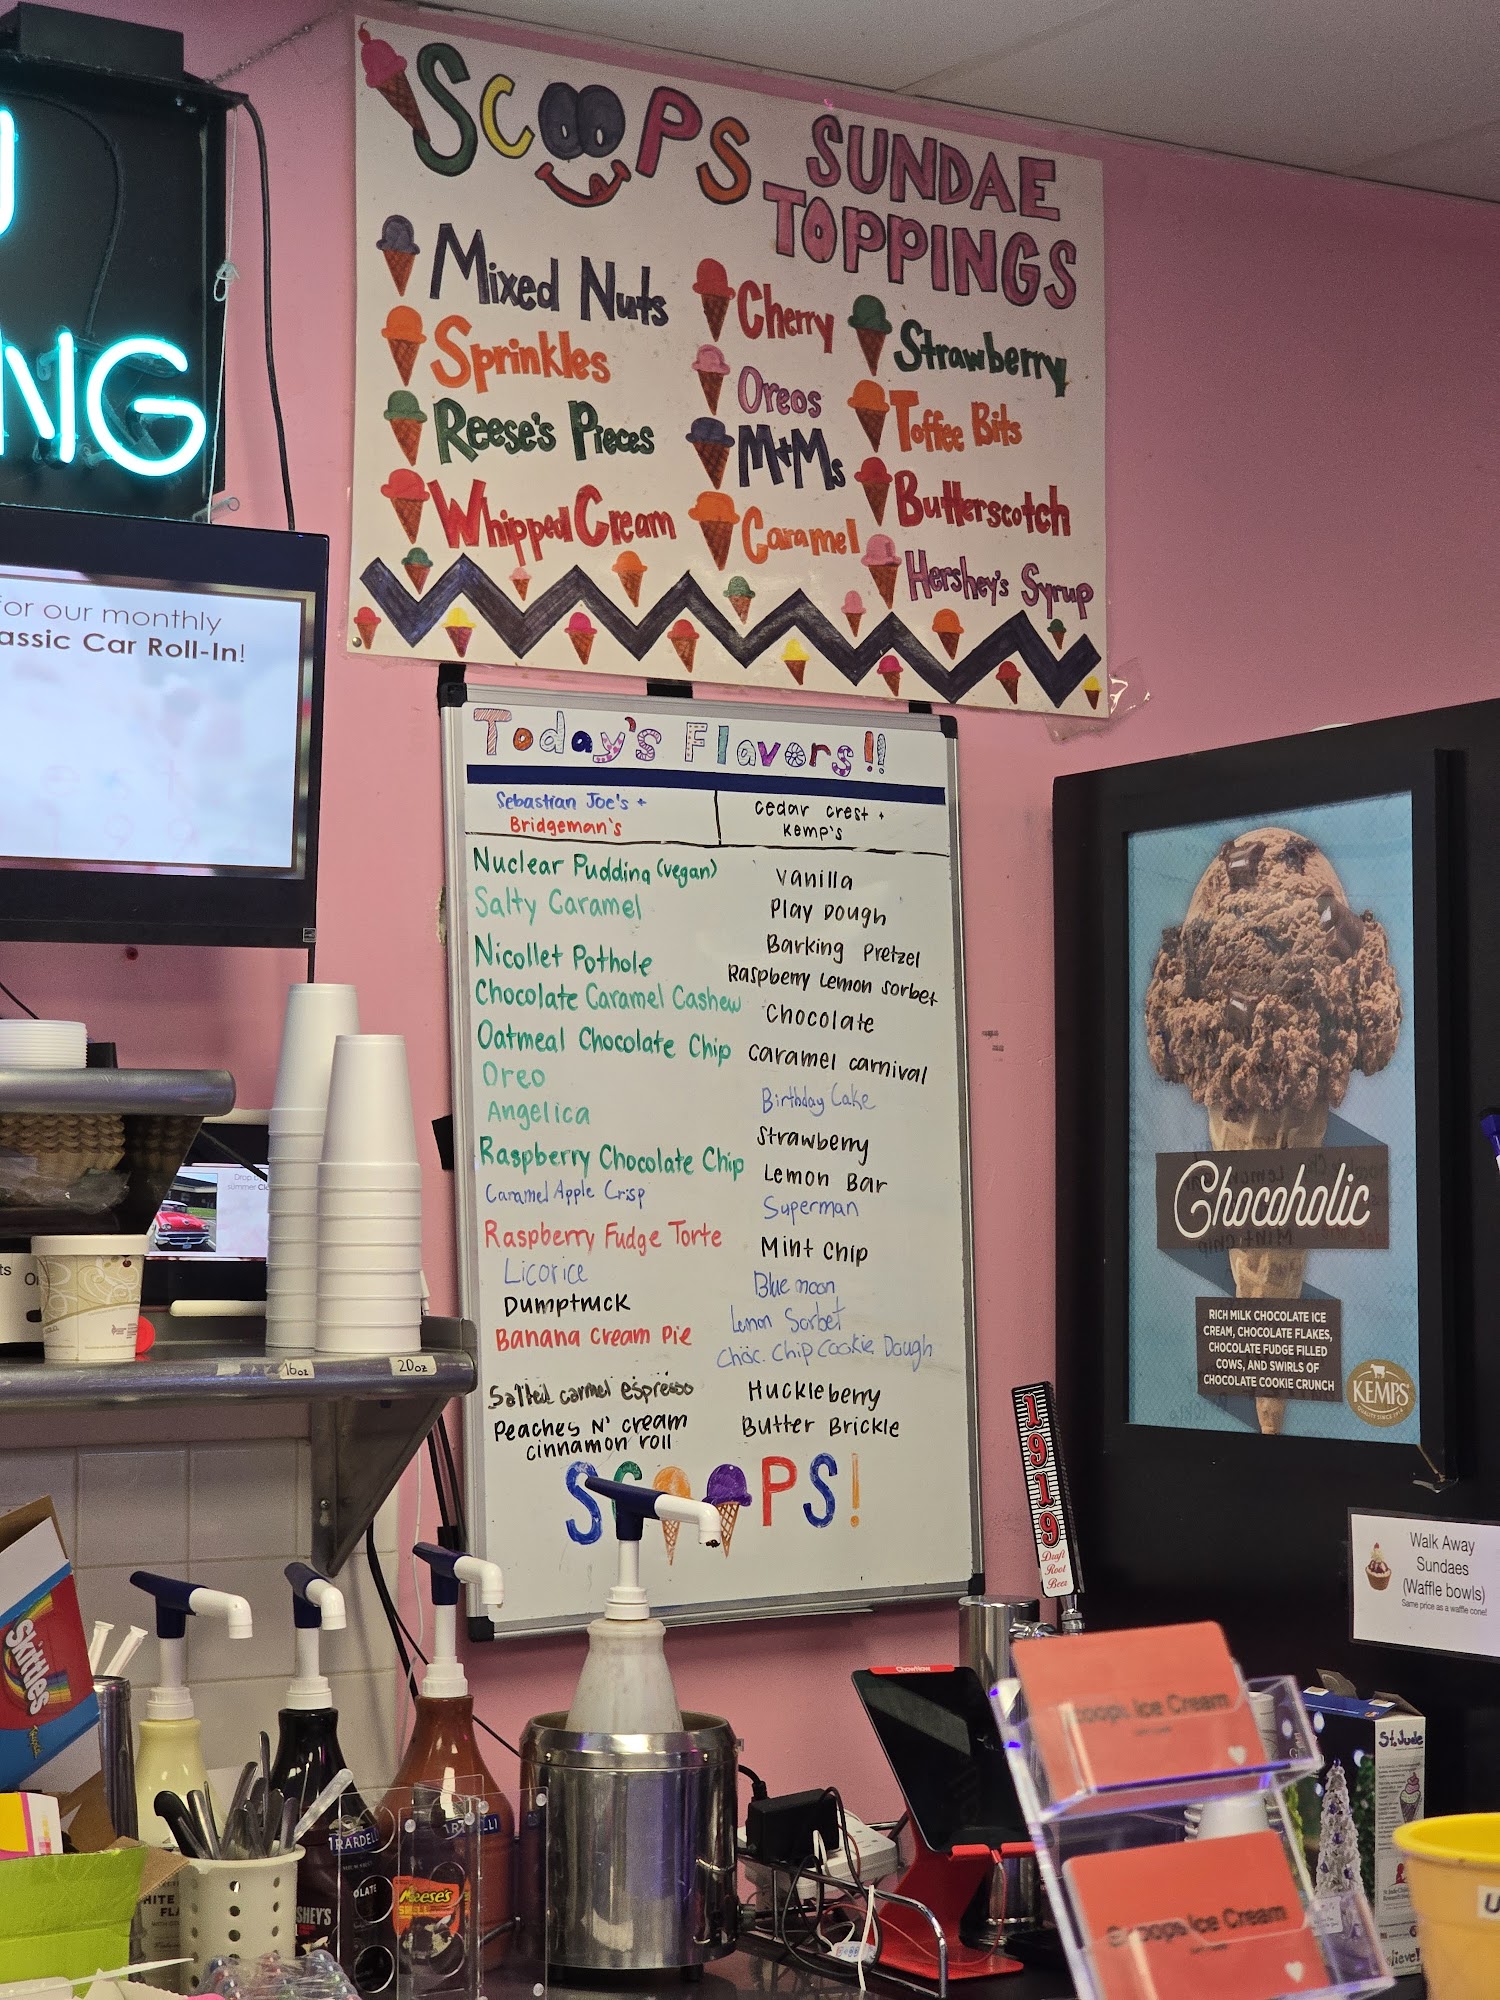 SCOOPS SUNDAE
TOPPINGS
Mixed Nuts
Sprinkles
Reese's Pieces
Whipped Cream
Cherry
Oreos
M+Ms
Caramel
Strawberry
Toffee Bits
Butterscotch
Hershey's Syrup
NG
for our monthly
assic Car Roll-In!
Today's Flavors!!
Sebastian Joe's +
Bridgeman's
Nuclear Pudding (vegan)
Salty Caramel
Nicollet Pothole
Chocolate Caramel Cashew
Oatmeal Chocolate Chip
Oreo
Angelica
Raspberry Chocolate Chip
Caramel Apple Crisp
Raspberry Fudge Torte
Licorice
Dumptruck
Banana Cream Pie
Salted carmel espresso
Peaches N' cream
cinnamon roll
cedar crest +
Kemp's
Vanilla
Play Dough
Barking Pretzel
Raspberry Lemon Sorbet
Chocolate
Caramel carnival
Birthday Cake
Strawberry
Lemon Bar
Superman
Mint Chip
Blue moon
Lemon Sorbet
Choc. Chip Cookie Dough
Huckleberry
Butter Brickle
SCOOPS!
Chocoholic
RICH MILK CHOCOLATE ICE
CREAM, CHOCOLATE FLAKES,
CHOCOLATE FUDGE FILLED
COWS, AND SWIRLS OF
CHOCOLATE COOKIE CRUNCH
KEMPS
16oz
20oz
1919
Draft
Root
Beer
Walk Away
Sundaes
(Waffle bowls)
Same price as a waffle cone!
Skittles
REESE'S
SHELL
St. Jude
Scoops Ice Cream